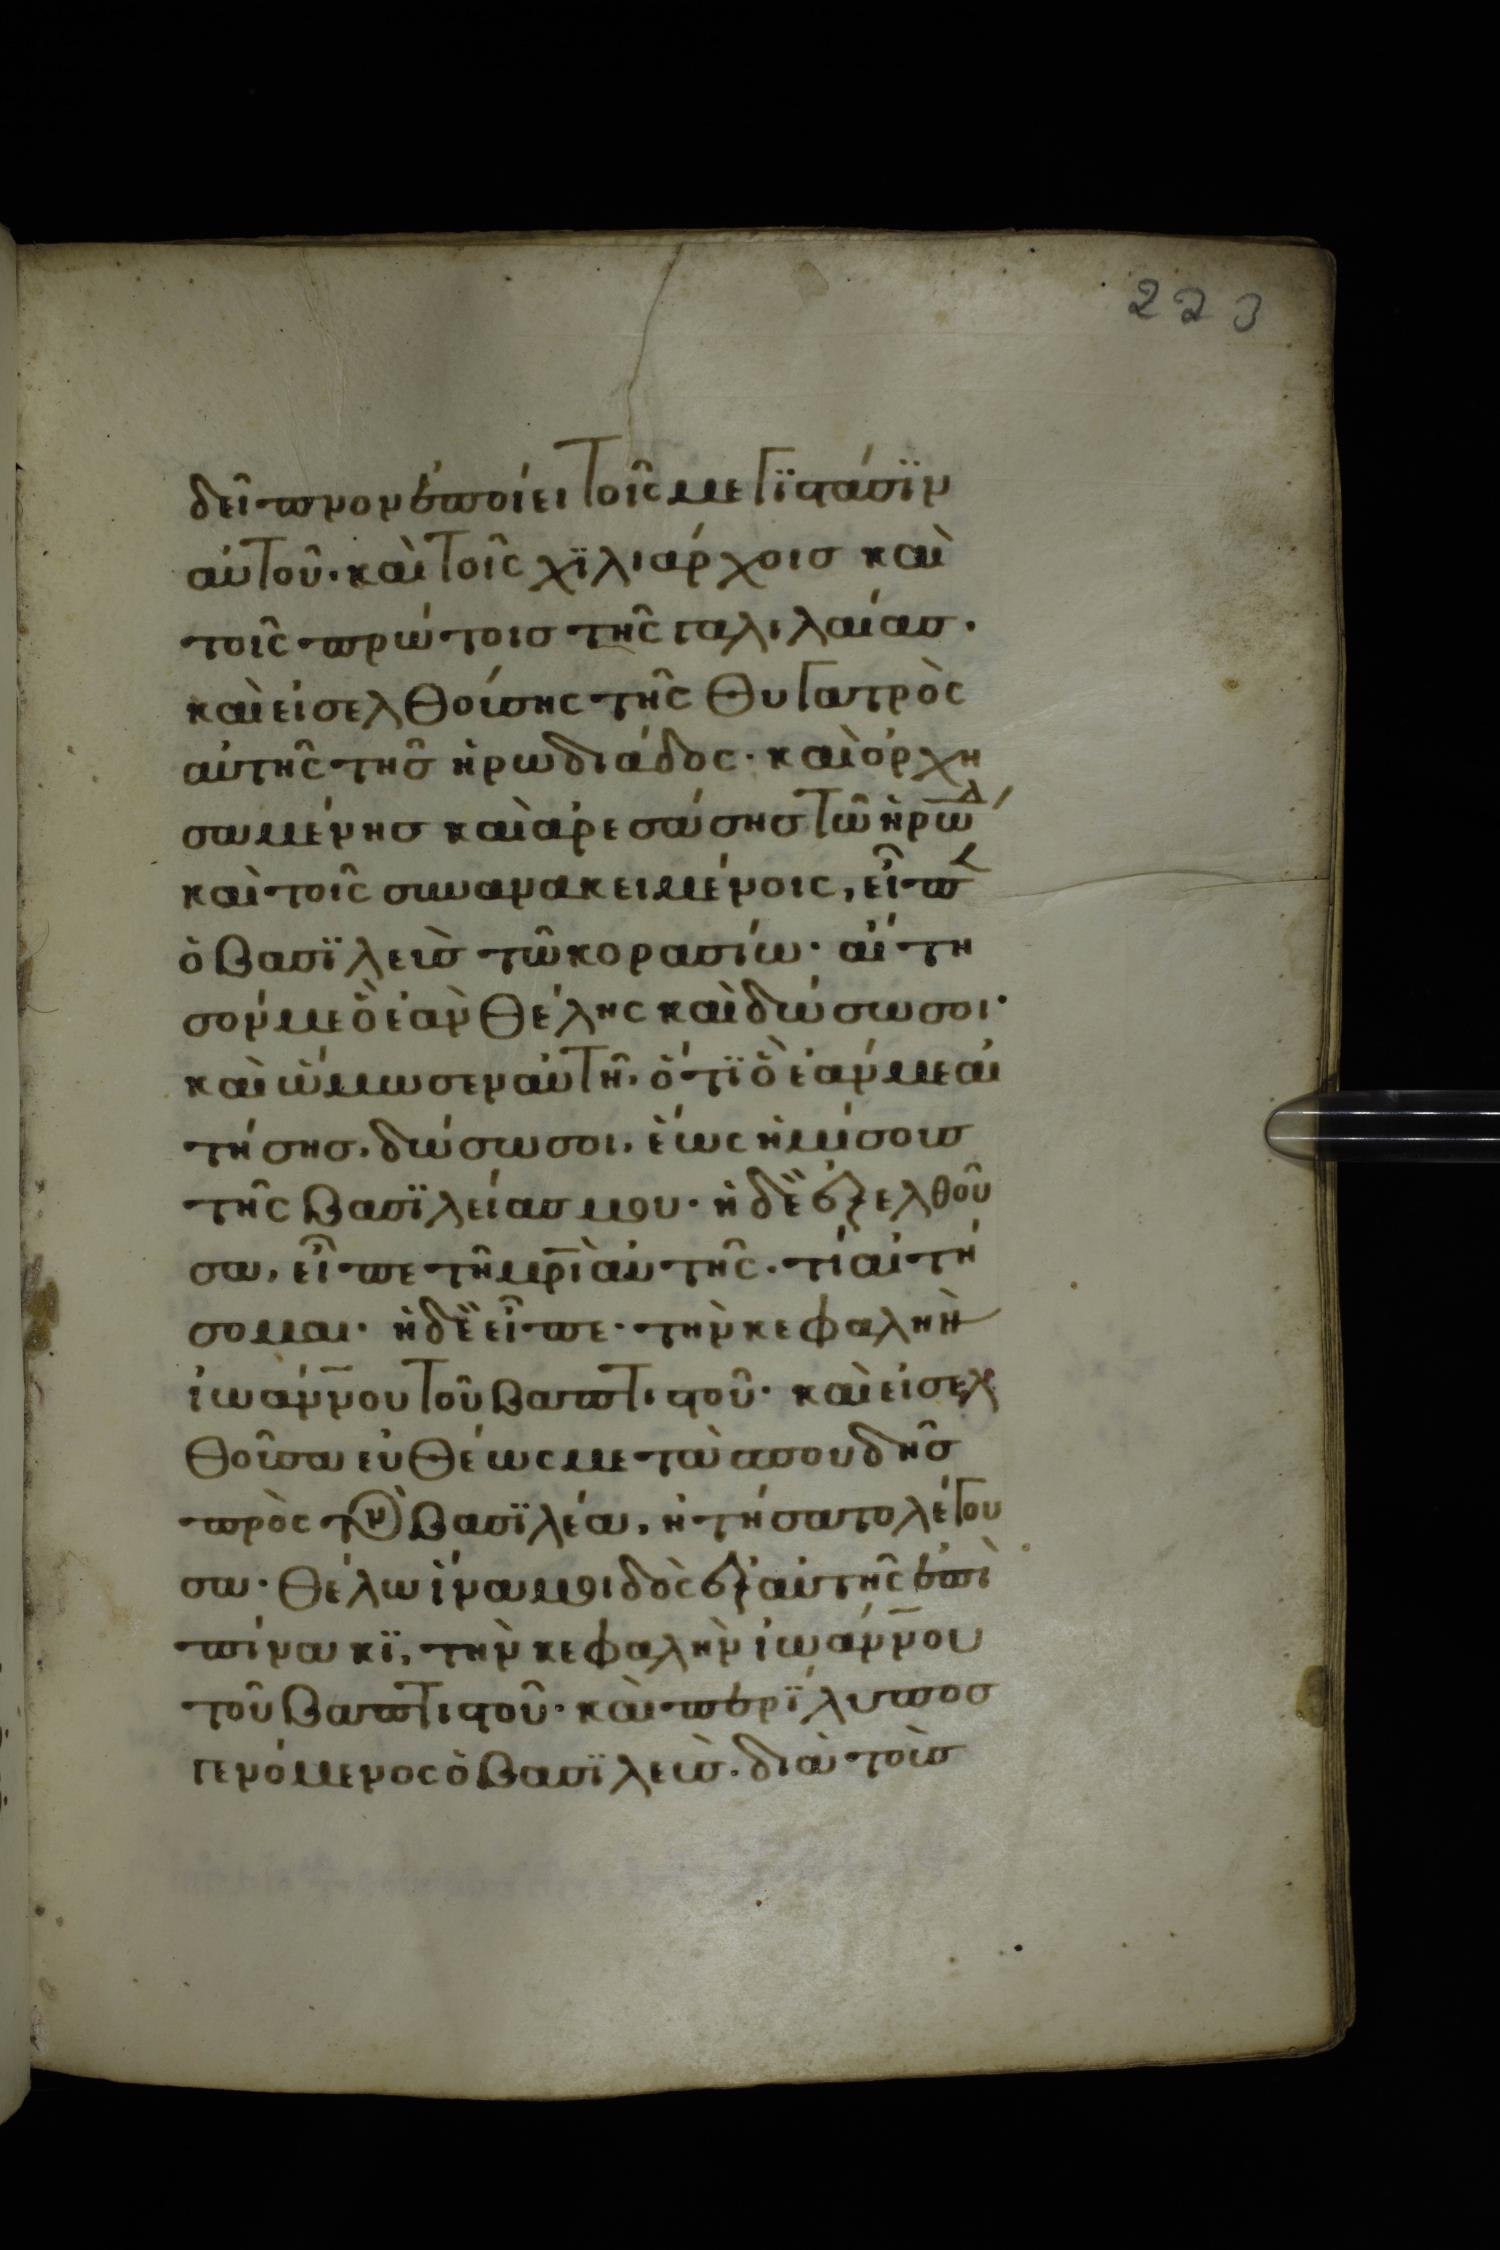 223
δεῖπνον ἐποίει τοῖς μεγϊστάσϊν
αὐτοῦ· καὶ τοῖς χϊλιάρχοισ καὶ
τοῖς πρώτοισ τῆς γαλιλαίασ.
καὶ εἰσελθούσης τῆς θυγατρὸς
αὐτῆς τῆσ ἡρωδιάδος· καὶ ὀρχη
σαμένησ καὶ ἀρεσάσησ τῶ ἡρώδ
καὶ τοῖς συνανακειμένοις, εἶπ
ὁ βασϊλεὺσ τῶ κορασίω· αἴτη
σόν με ὃ ἐὰν θέλης καὶ δώσω σοι·
καὶ ὤμωσεν αὐτῆ, ὅτϊ ὃ ἐάν με αἰ
τήσησ, δώσω σοι, ἕως ἡμίσουσ
τῆς βασϊλείασ μου· ἡ δὲ ἐξελθοῦ
σα, εἶπε τῆ μρ̅ὶ αὐτῆς. τί αἰτή
σομαι· ἡ δὲ εἶπε· τὴν κεφαλὴν
ἰωάννου τοῦ βαπτιστοῦ· καὶ εἰσελ
θοῦσα εὐθέως μετὰ σπουδῆσ
πρὸς τὸν βασϊλέα, ἠτήσατο λέγου
σα· θέλω ἵνα μοι δὸς ἐξ αὐτῆς ἐπὶ
πίνακϊ, τὴν κεφαλὴν ἰωάννου
τοῦ βαπτιστοῦ· καὶ περϊλυποσ
γενόμενος ὁ βασϊλεὺσ. διὰ τοὺσ